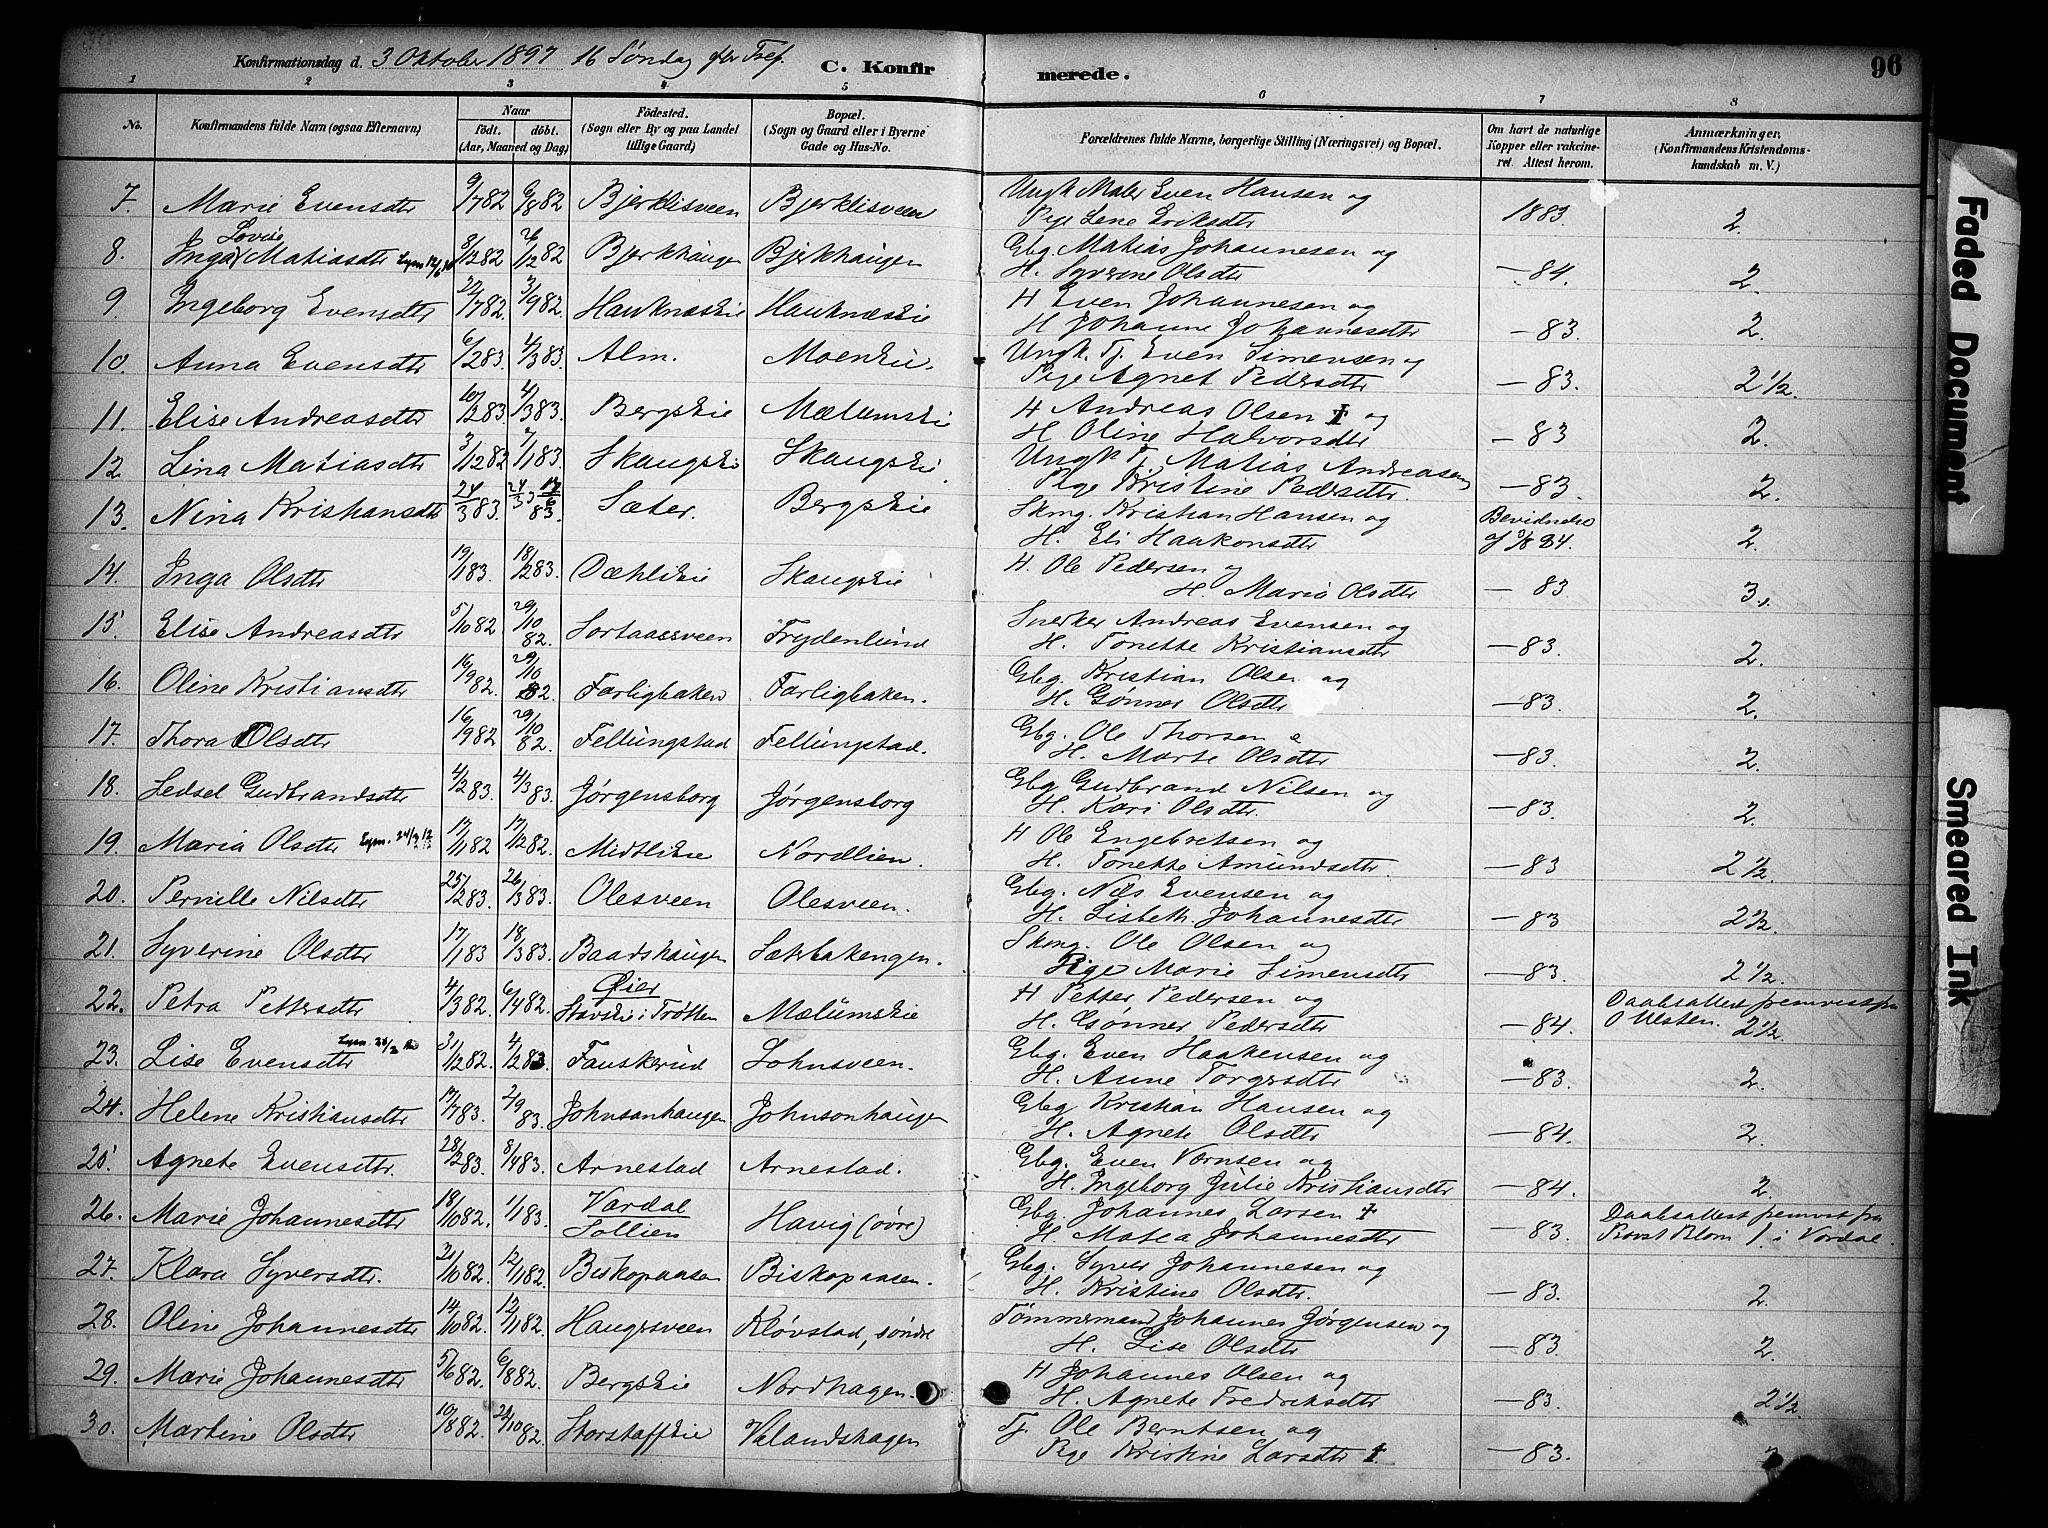 Konfirmationsdag d. 3 Oktober 1897 16 Søndag efter Tref. C. Konfirmerede. 96
1 2 3 4 5 6 7 8
No. Konfirmandens fulde Navn (ogsaa Efternavn) Naar født. døbt. (Aar, Maaned og Dag) Fødested. (Sogn eller By og paa Landet tillige Gaard) Bopæl. (Sogn og Gaard eller i Byerne Gade og Hus-No. Forældrenes fulde Navne, borgerlige Stilling (Næringsvei) og Bopæl. Om havt de naturlige Kopper eller vakcineret. Attest herom. Anmærkninger, (Konfirmandens Kristendomskundskab m. V.)
7. Marie Evensdtr 9/7 82 6/8 82 Bjerklisveen Bjerklisveen Ungk. Maler Even Hansen og
Pige Lene Eriksdtr 1883. 2.
8. Inga Lovise Matiasdtr 8/12 82 26/12 82 Bjerkhaugen Bjerkhaugen Gbg. Matias Johannesen og
H. Syverine Olsdtr —84. 2.
9. Ingeborg Evensdtr 22/7 82 3/9 82 Hauknæseie Hauknæseie H Even Johannesen og
H Johanne Johannesdtr —83. 2.
10. Anna Evensdtr 6/2 83 4/3 83. Alm. Moeneie. Ungk. Tj. Even Simensen og
Pige Agnet Pedersdtr —83. 2 1/2.
11. Elise Andreasdtr 10/2 83 4/3 83. Bergseie Mælumseie H Andreas Olsen † og
H. Oline Halvorsdtr —83 2.
12. Lina Matiasdtr 3/12 82 7/1 83. Skaugseie Skaugseie Ungk Tj. Matias Andreasen
Pige Kristine Pedersdtr. —83. 2.
13. Nina Kristiansdtr 24/3 83. 24/3 17/6 83. Sæter. Bergseie Skmg. Kristian Hansen og
H. Eli Haakonsdtr Bevidnelse af 84. 2.
14. Inga Olsdtr 19/1 83. 18/2 83. Dæhlieie Skaugseie H. Ole Pedersen og
H. Marie Olsdtr —83 3.
15. Elise Andreasdtr 5/10 82 29/10 82. Sortaasveen Frydenlund Snerker Andreas Evensen og
H. Tonette Kristiansdtr —83. 2.
16. Oline Kristiansdtr 16/9 82. 29/10 82. Farligbaken Farligbaken. Gbg. Kristian Olsen og
H. Gønner Olsdtr —83. 2.
17. Thora Olsdtr 16/9 82 29/10 82. Fellungstad Fellungstad. Gbg. Ole Thorsen e
H. Marte Olsdtr —83. 2.
18. Sedsel Gudbrandsdtr 4/2 83. 4/3 83. Jørgensborg Jørgensborg Gbg Gudbrand Nilsen og
H. Kari Olsdtr. —83. 2.
19. Maria Olsdtr 17/11 82 17/12 82. Midtlieie Nordlien. H Ole Engebretsen og
H. Tonette Amundsdtr. —83 2 1/2.
20. Pernille Nilsdtr 25/2 83. 26/3 83. Olesveen Olesveen. Gbg. Nils Evensen og
H. Lisbeth Johannesdtr —83 2 1/2.
21. Syverine Olsdtr 17/1 83 18/3 83. Baadshaugen Sætrbakengen. Skmg. Ole Olsen og
Pige Marie Simensdtr —83. 2 1/2.
22. Petra Pettersdtr 4/3 82. 6/4 82. Øier Stavseie i Trøtten Mælumseie H Petter Pedersen og
H. Gønner Pedersdtr —84. Daabsattest fremvist fra Ulsten. 2 1/2.
23. Lise Evensdtr 31/12 82. 4/2 83. Fauskerud Johnsveen. Gbg. Even Haakensen og
H. Anne Torgersdtr —83. 2.
24. Helene Kristiansdtr 17/7 83. 2/9 83. Johnsonhaugen Johnsonhaugen Gbg Kristian Hansen og
H. Agnete Olsdtr —84. 2.
25. Agnete Evensdtr. 28/2 83. 8/4 83. Arnestad Arnestad. Gbg. Even Vernsen og
H. Ingeborg Julie Kristiansdtr —84. 2.
26. Marie Johannesdtr 18/10 82. 1/1 83. Vardal Sollien Havig (øvre) Gbg. Johannes Larsen †
H. Matea Johannesdtr —83. Daabsattest fremvist fra Provst Blom i Vardal.
27. Klara Syversdtr. 21/10 82. 12/11 82. Biskopaasen Biskopaasen. Gbg. Syver Johannesen og
H. Kristine Olsdtr. —83. 2.
28. Oline Johannesdtr 14/10 82. 12/11 82. Haugesveen Kløvstad, søndre Tømmermand Johannes Jørgensen og
H. Lise Olsdtr —83. 2.
29. Marie Johannesdtr 5/6 82. 6/8 82. Bergseie Nordhagen. H Johannes Olsen og
H. Agnete Fredriksdtr —83. 2 1/2.
30. Martine Olsdtr 10/8 82. 22/10 82. Storstaffeie Valandshagen Tj. Ole Berntsen og
Pige Kristine Larsdtr † —83. 2
Faded Document
Smeared Ink